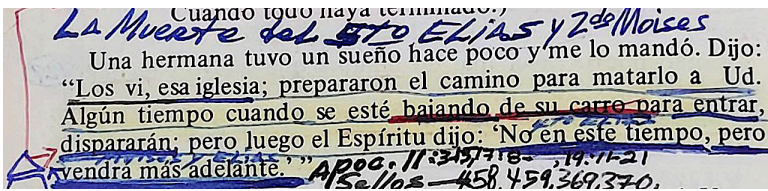 Cuando todo haya terminado.)
LA Muerte del 5TO ELIAS y 2do Moises
Una hermana tuvo un sueño hace poco y me lo mandó. Dijo:
“Los vi, esa iglesia; prepararon el camino para matarlo a Ud.
Algún tiempo cuando se esté bajando de su carro para entrar,
dispararán; pero luego el Espíritu dijo: ‘No en este tiempo, pero
vendrá más adelante.’ ”
Apoc. 11:
Sellos - 458, 459, 369, 370,